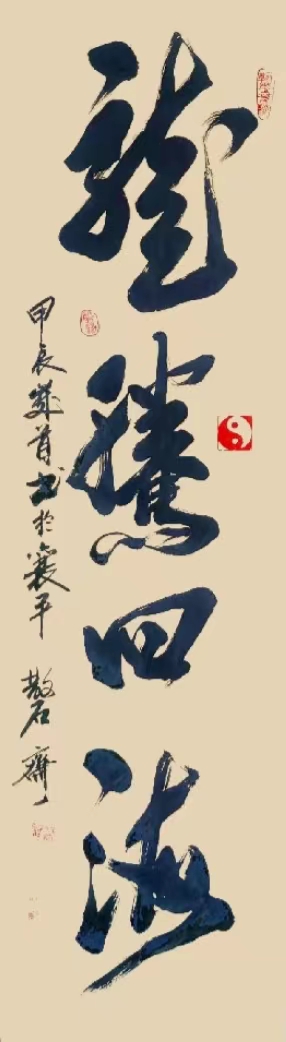 龍騰四海
甲辰歲首書於襄平 散石齋